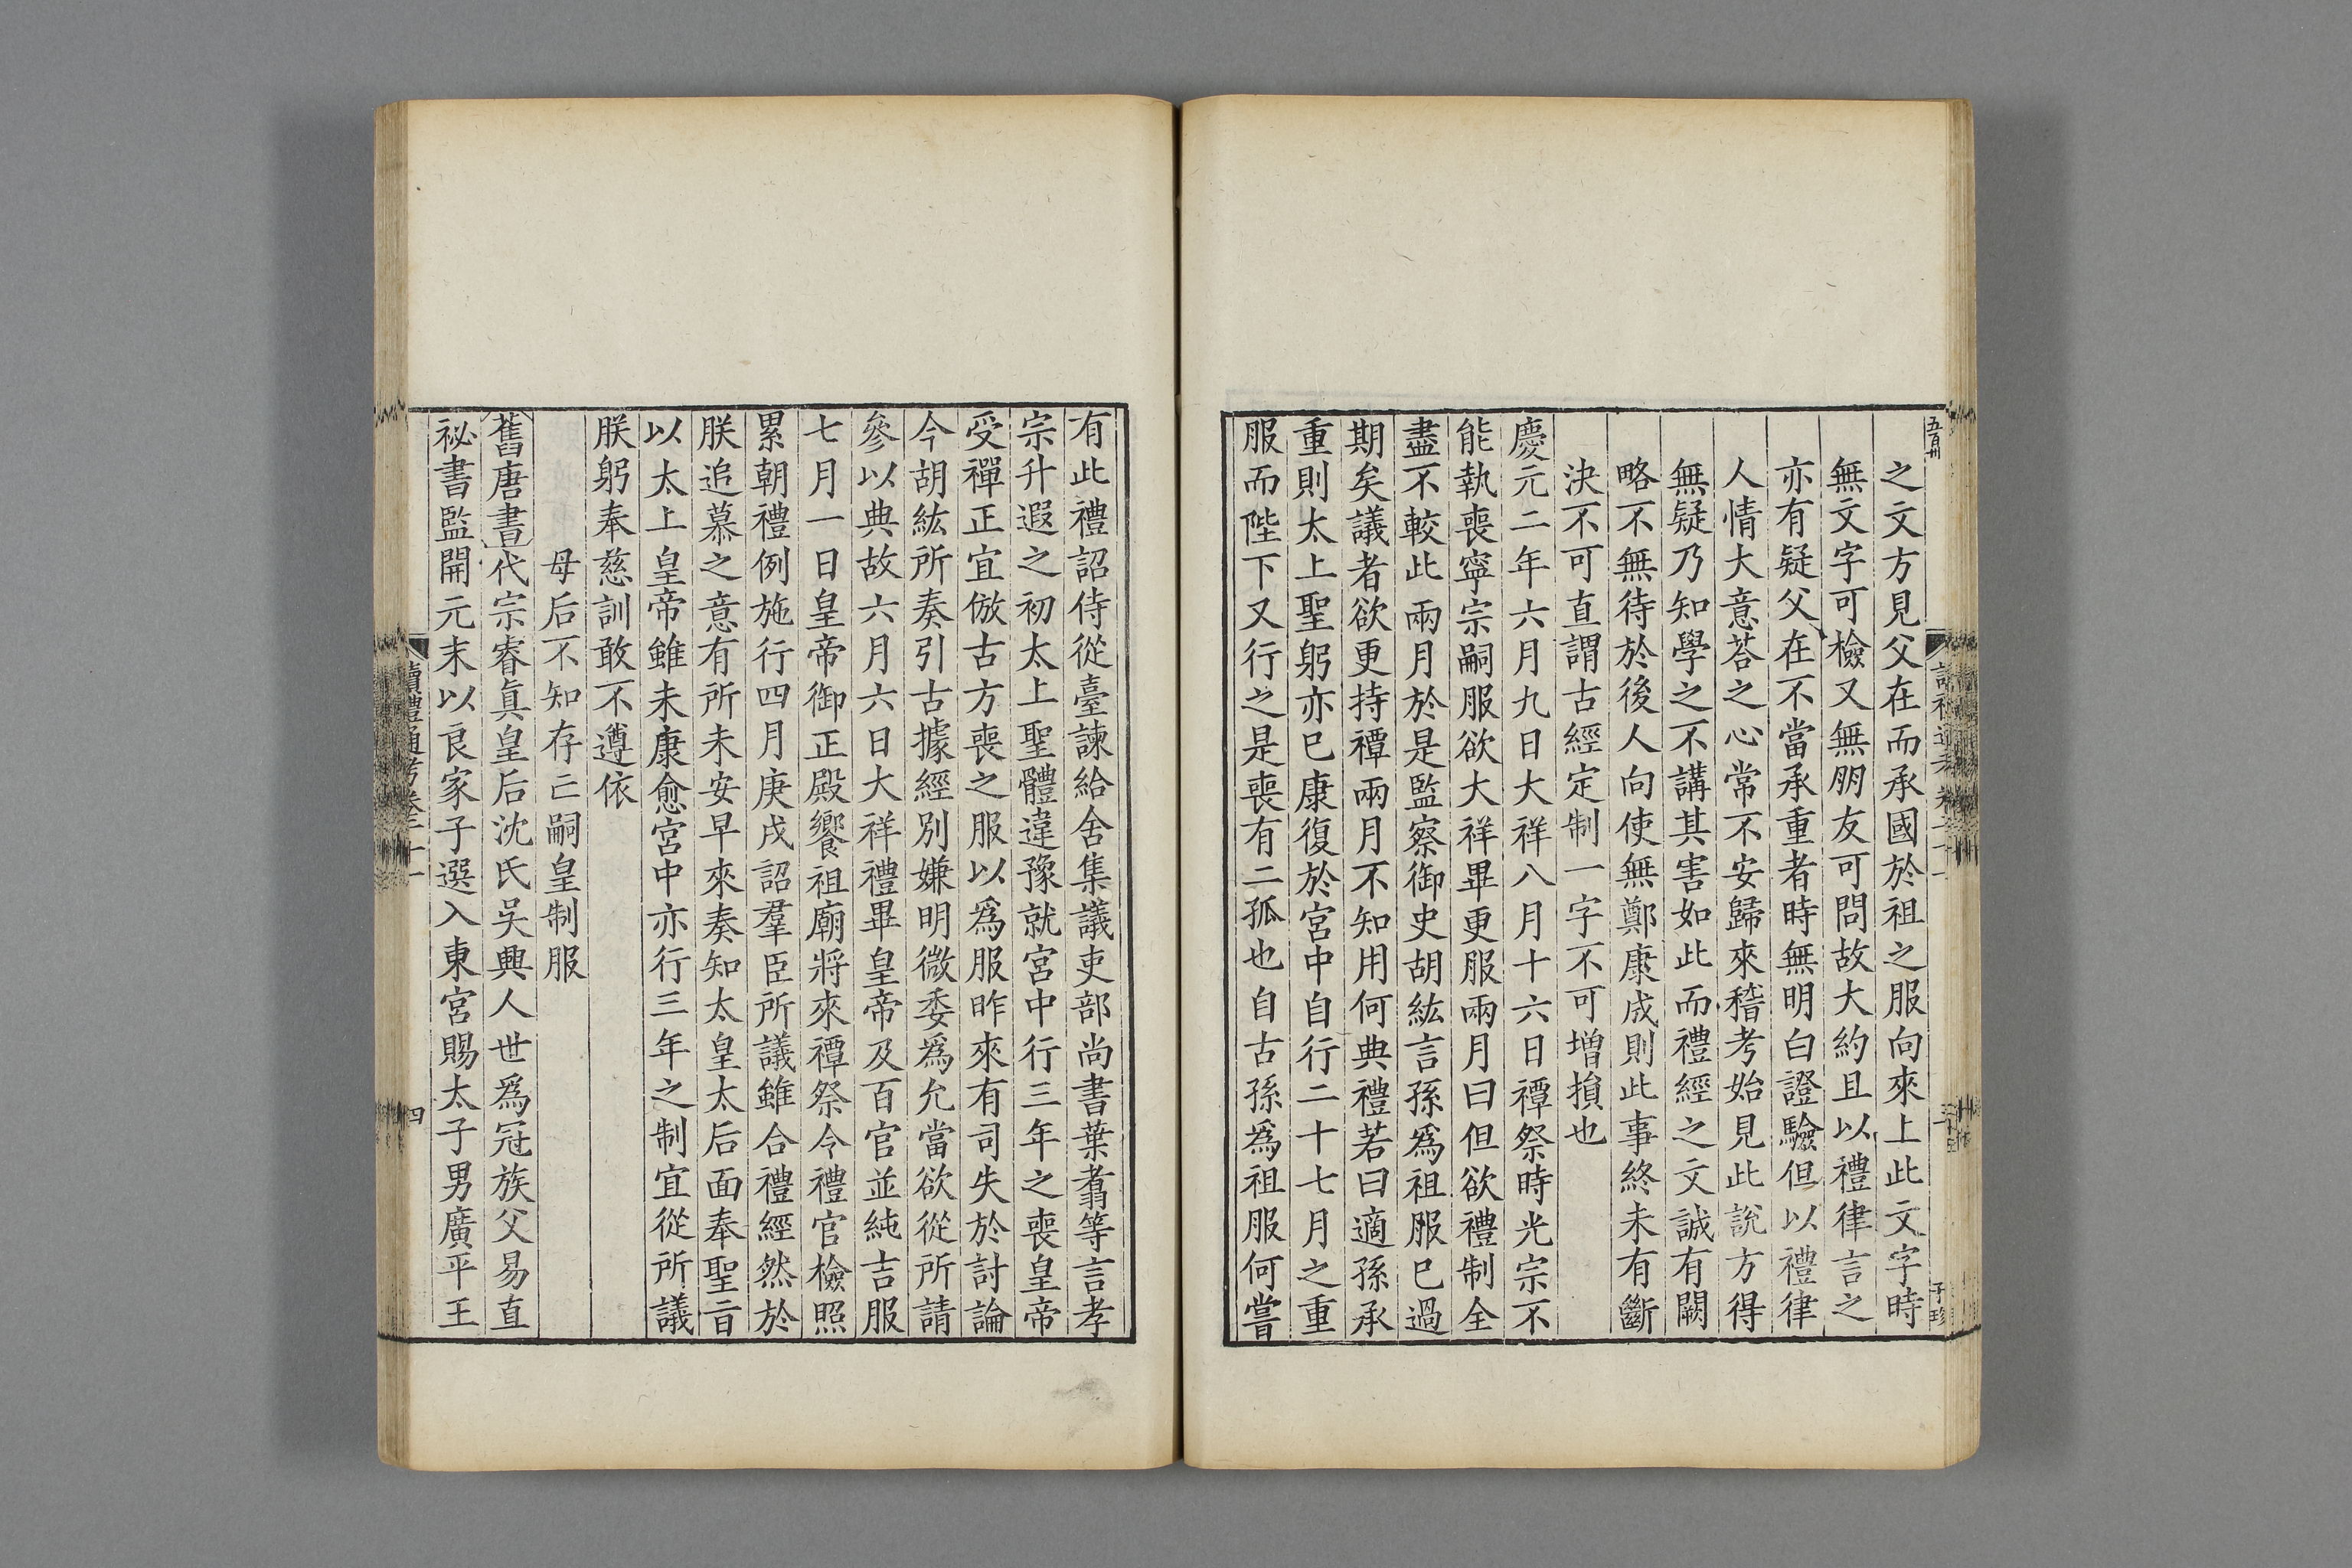 之文方見父在而承國於祖之服向來上此文字時
無文字可檢又無朋友可問故大約且以禮律言之
亦有疑父在不當承重者時無明白證驗但以禮律
人情大意荅之心常不安歸來稽考始見此說方得
無疑乃知學之不講其害如此而禮經之文誠有闕
略不無待於後人向使無鄭康成則此事終未有斷
決不可直謂古經定制一字不可增損也
慶元二年六月九日大祥八月十六日禫祭時光宗不
能執喪寧宗嗣服欲大祥畢更服兩月曰但欲禮制全
盡不較此兩月於是監察御史胡紘言孫爲祖服已過
期矣議者欲更持禫兩月不知用何典禮若曰適孫承
重則太上聖躬亦已康復於宮中自行二十七月之重
服而陛下又行之是喪有二孤也自古孫爲祖服何嘗
有此禮詔侍從臺諫給舍集議吏部尚書葉翥等言孝
宗升遐之初太上聖體違豫就宮中行三年之喪皇帝
受禪正宜倣古方喪之服以爲服昨來有司失於討論
今胡紘所奏引古據經別嫌明微委爲允當欲從所請
參以典故六月六日大祥禮畢皇帝及百官並純吉服
七月一日皇帝御正殿饗祖廟將來禫祭令禮官檢照
累朝禮例施行四月庚戌詔羣臣所議雖合禮經然於
朕追慕之意有所未安早來奏知太皇太后面奉聖旨
以太上皇帝雖未康愈宮中亦行三年之制宜從所議
朕躬奉慈訓敢不遵依
母后不知存亡嗣皇制服
舊唐書代宗睿眞皇后沈氏吳興人世爲冠族父易直
祕書監開元末以良家子選入東宮賜太子男廣平王
讀禮通考卷二十一
四